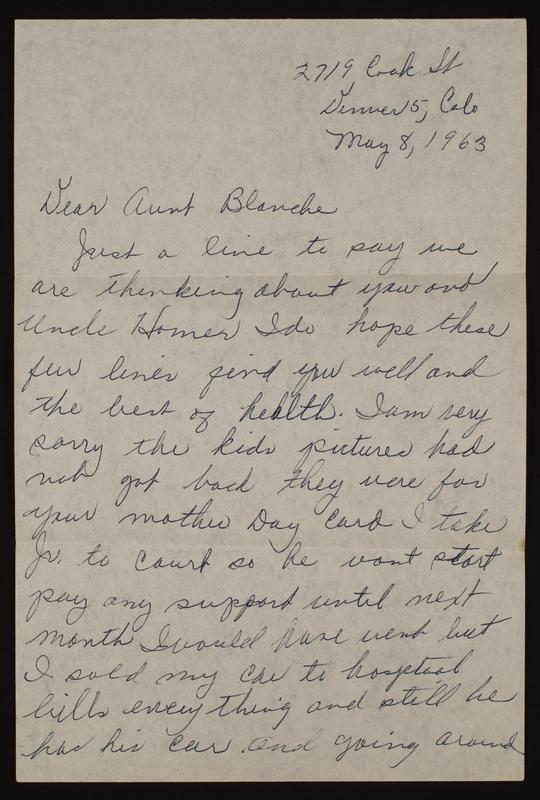 2719 Cook St
Denver 5, Colo
May 8, 1963
Dear Aunt Blanche
Just a line to say we
are thinking about you and
Uncle Homer I do hope these
few lines find you well and
the best of health. I am very
sorry the kids pictures had
not got back they were for
your mother Day Card I take
Jr. to court so he wont start
pay any support until next
month I would have went but
I sold my car to hospetual
bills everything and still he
has his car. and going around